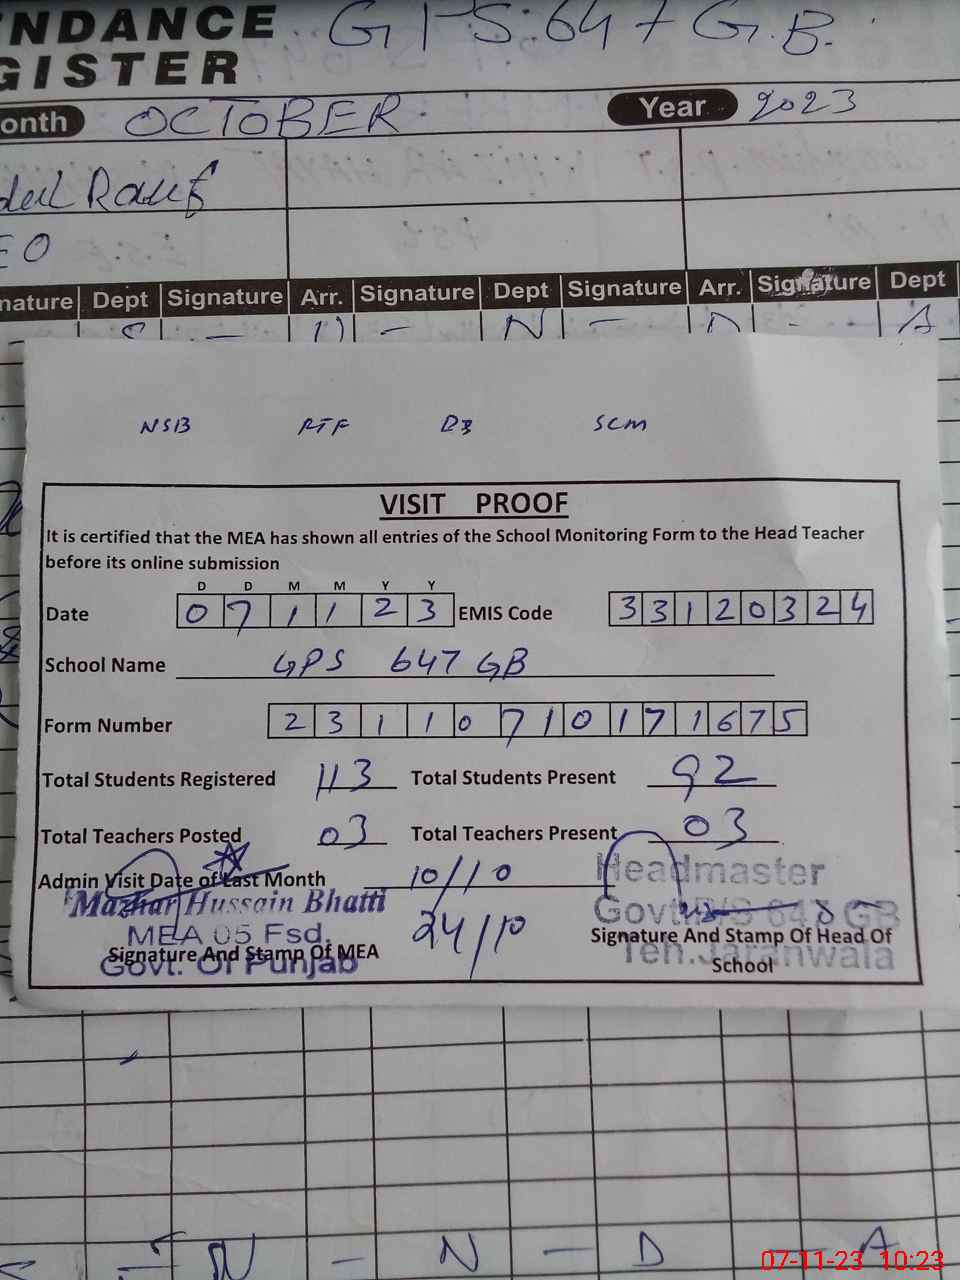 NDANCE GPS. 647 G.B.
GISTER
onth OCTOBER Year 2023
dul Rauf
EO
nature Dept Signature Arr. Signature Dept Signature Arr. Signature Dept
- N - D - A
NSB RTF SCM
VISIT PROOF
It is certified that the MEA has shown all entries of the School Monitoring Form to the Head Teacher
before its online submission
D D M M Y Y
Date 0 7 1 1 2 3 EMIS Code 3 3 1 2 0 3 2 4
School Name GPS 647 GB
Form Number 2 3 1 1 0 7 1 0 1 7 1 6 7 5
Total Students Registered 113 Total Students Present 92
Total Teachers Posted 03 Total Teachers Present 03
Admin Visit Date of Last Month 10/10
24/10
Mazhar Hussain Bhatti
MEA 05 Fsd.
Govt. Of Punjab
Signature And Stamp Of MEA
Headmaster
Govt. P/S 647 GB
Teh. Jaranwala
Signature And Stamp Of Head Of
School
N - N - D - A
07-11-23 10:23